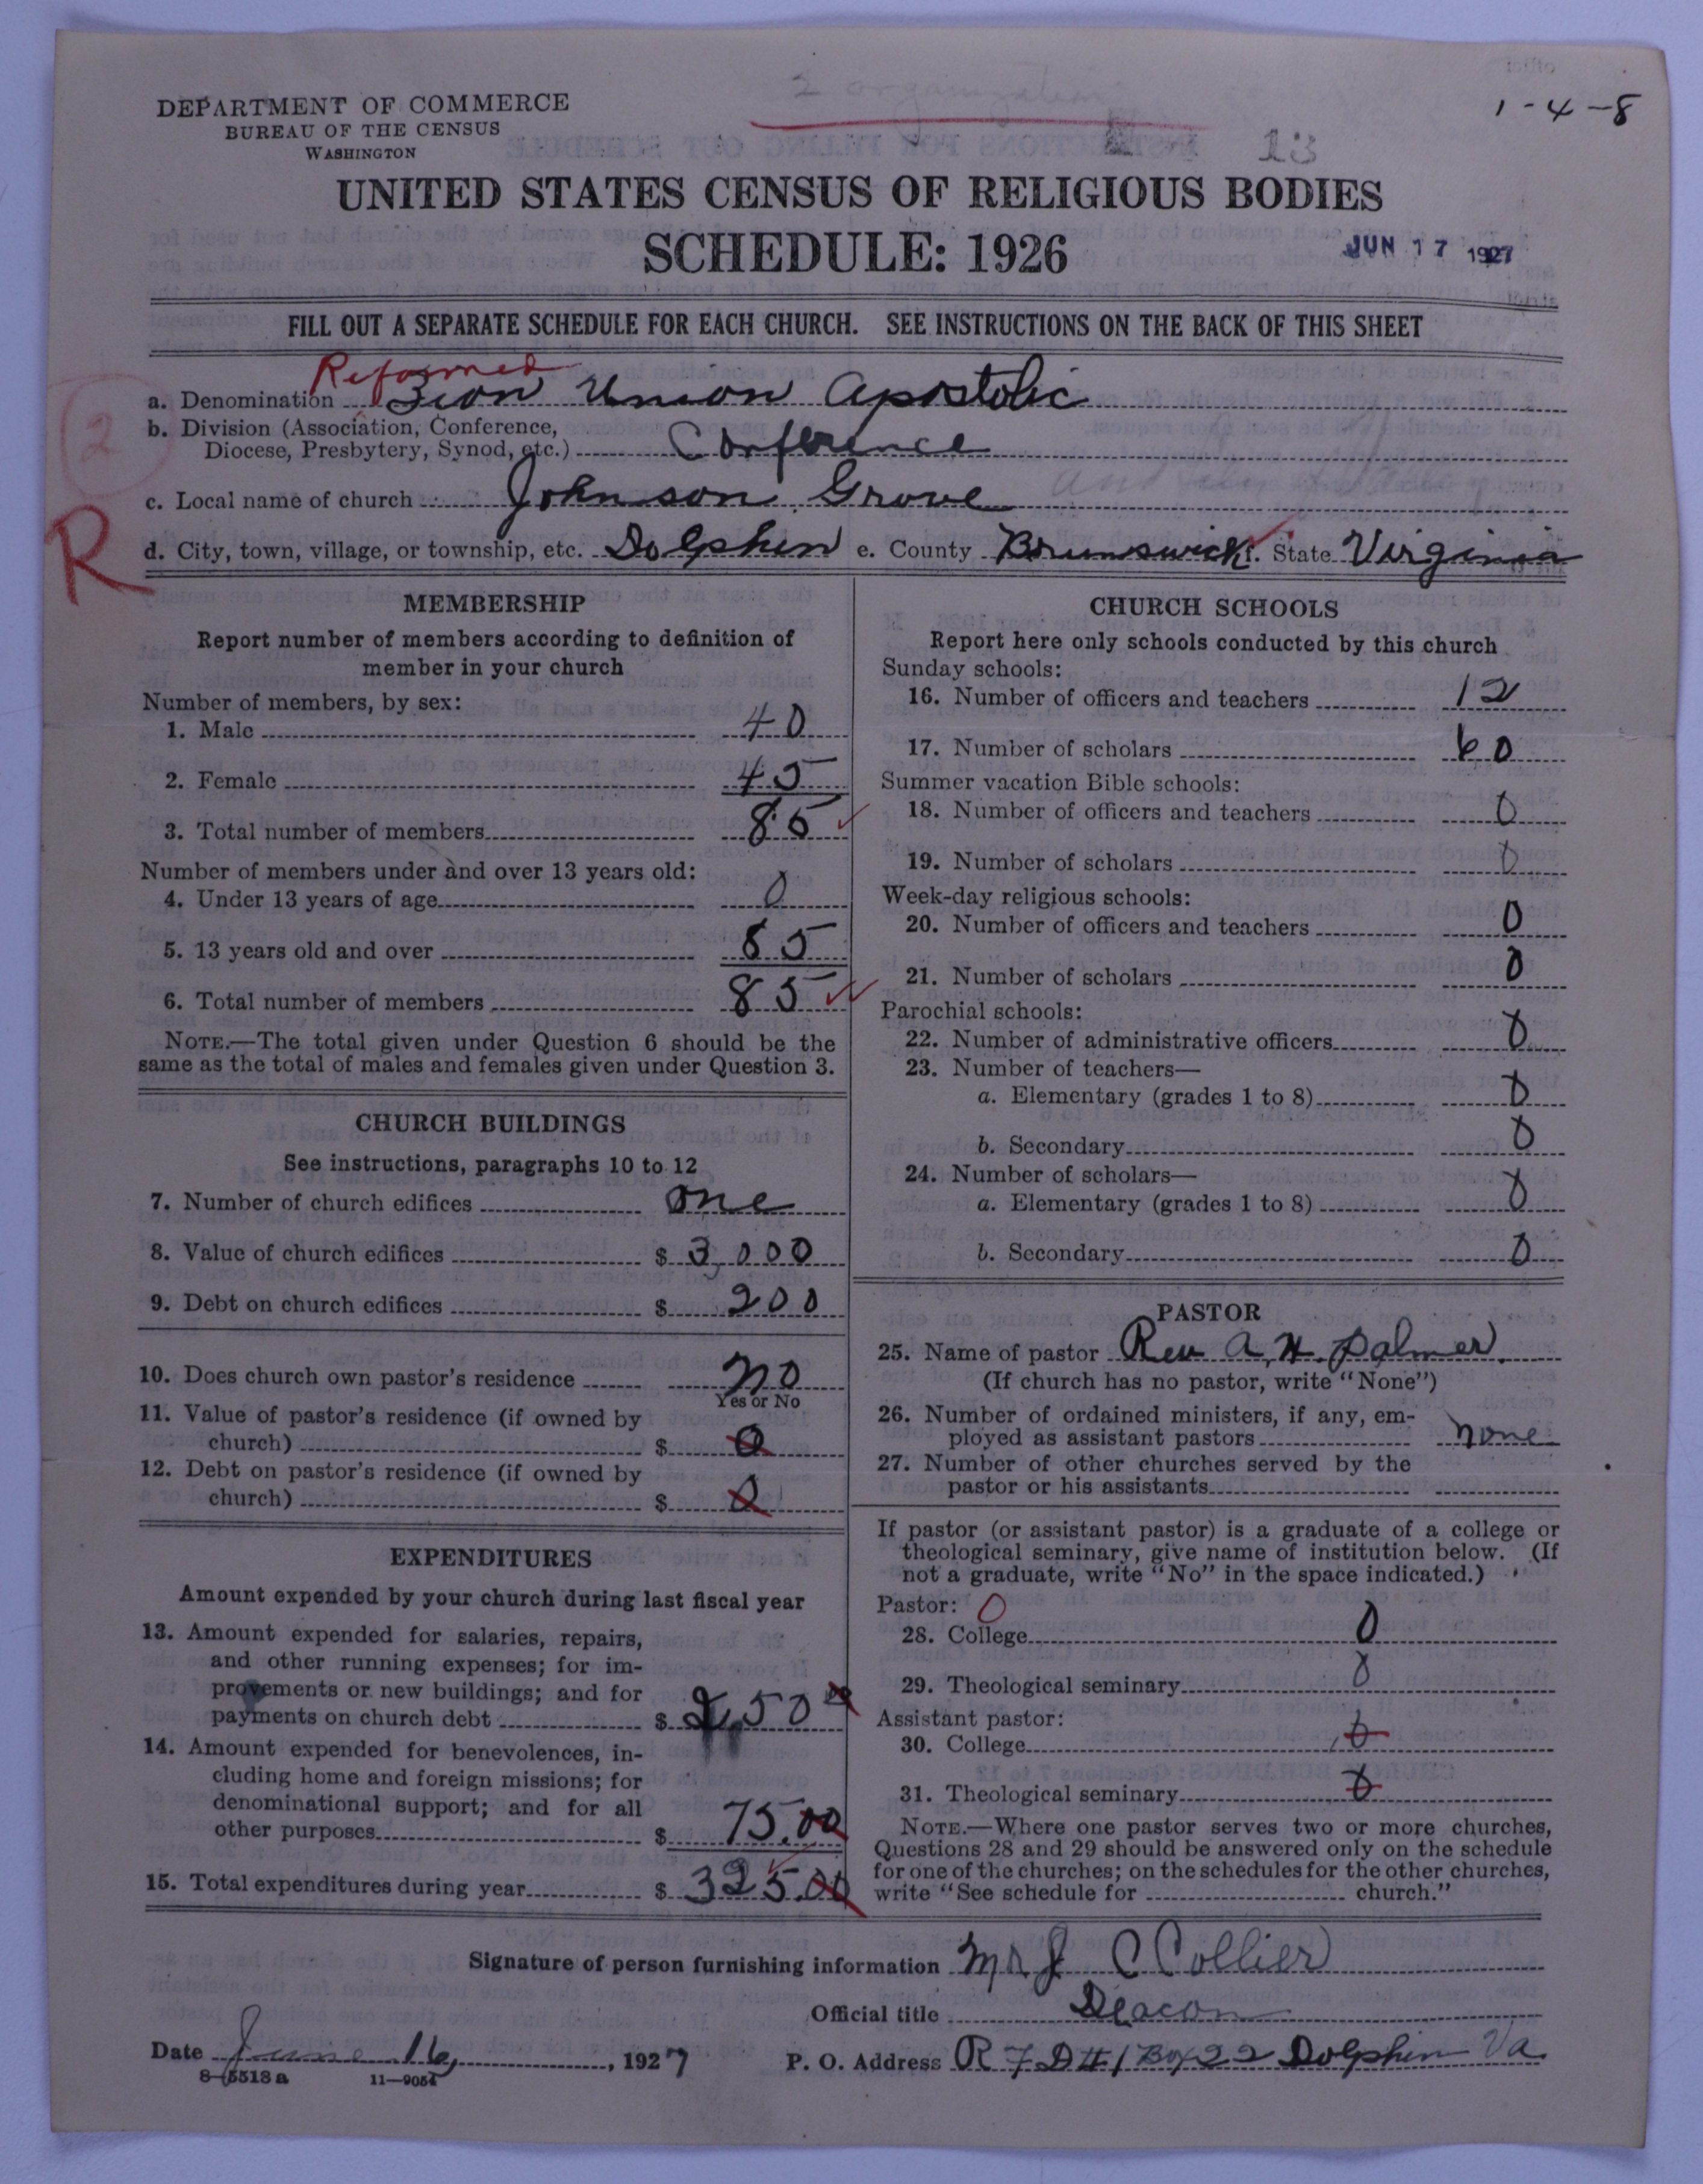 2 organizations
1-4-8
DEPARTMENT OF COMMERCE
BUREAU OF THE CENSUS
WASHINGTON
13
UNITED STATES CENSUS OF RELIGIOUS BODIES
SCHEDULE: 1926
JUN 17 1927
FILL OUT A SEPARATE SCHEDULE FOR EACH CHURCH. SEE INSTRUCTIONS ON THE BACK OF THIS SHEET
Reformed
a. Denomination Zion Union Apostolic
2
b. Division (Association, Conference,
Diocese, Presbytery, Synod, etc.) Conference
c. Local name of church Johnson Grove
R
d. City, town, village, or township, etc. Dolphin e. County Brunswick f. State Virginia
MEMBERSHIP
Report number of members according to definition of
member in your church
Number of members, by sex:
1. Male 40
2. Female 45
3. Total number of members 85
Number of members under and over 13 years old:
4. Under 13 years of age 0
5. 13 years old and over 85
6. Total number of members 85
NOTE.—The total given under Question 6 should be the
same as the total of males and females given under Question 3.
CHURCH BUILDINGS
See instructions, paragraphs 10 to 12
7. Number of church edifices one
8. Value of church edifices $ 3,000
9. Debt on church edifices $ 200
10. Does church own pastor's residence no
Yes or No
11. Value of pastor's residence (if owned by
church) $ 0
12. Debt on pastor's residence (if owned by
church) $ 0
EXPENDITURES
Amount expended by your church during last fiscal year
13. Amount expended for salaries, repairs,
and other running expenses; for im-
provements or new buildings; and for
payments on church debt $ 250 00
14. Amount expended for benevolences, in-
cluding home and foreign missions; for
denominational support; and for all
other purposes $ 75.00
15. Total expenditures during year $ 325.00
CHURCH SCHOOLS
Report here only schools conducted by this church
Sunday schools:
16. Number of officers and teachers 12
17. Number of scholars 60
Summer vacation Bible schools:
18. Number of officers and teachers 0
19. Number of scholars 0
Week-day religious schools:
20. Number of officers and teachers 0
21. Number of scholars 0
Parochial schools:
22. Number of administrative officers 0
23. Number of teachers—
a. Elementary (grades 1 to 8) 0
b. Secondary 0
24. Number of scholars—
a. Elementary (grades 1 to 8) 0
b. Secondary 0
PASTOR
25. Name of pastor Rev A. H. Palmer.
(If church has no pastor, write "None")
26. Number of ordained ministers, if any, em-
ployed as assistant pastors none
27. Number of other churches served by the
pastor or his assistants
If pastor (or assistant pastor) is a graduate of a college or
theological seminary, give name of institution below. (If
not a graduate, write "No" in the space indicated.)
Pastor: 0
28. College 0
29. Theological seminary 0
Assistant pastor:
30. College 0
31. Theological seminary 0
NOTE.—Where one pastor serves two or more churches,
Questions 28 and 29 should be answered only on the schedule
for one of the churches; on the schedules for the other churches,
write "See schedule for church."
Signature of person furnishing information Mr J C Collier
Official title Deacon
Date June 16, 1927
P. O. Address R F D # 1 Box 22 Dolphin Va.
8-5518 a 11-9054